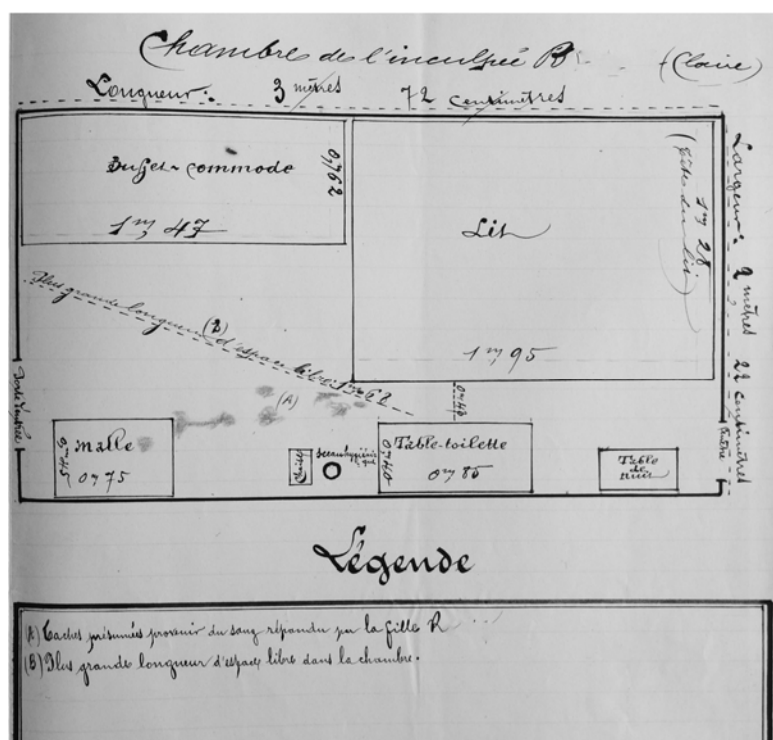 Chambre de l'inculpée R (Claire)
Longueur: 3 mètres 72 centimètres
Largeur: 2 mètres 22 centimètres
Buffet-commode
0m62
1m 47
Lit
1m 28
(Tête du lit)
1m 95
Plus grande longueur d'espace libre: 1m 62
(B)
(A)
0m48
Porte d'entrée
Malle
0m45
0m75
Seau hygiénique
Table-toilette
0m40
0m85
Table de nuit
Fenêtre
Légende
(A) Taches présumées provenir du sang répandu par la fille R
(B) Plus grande longueur d'espace libre dans la chambre.